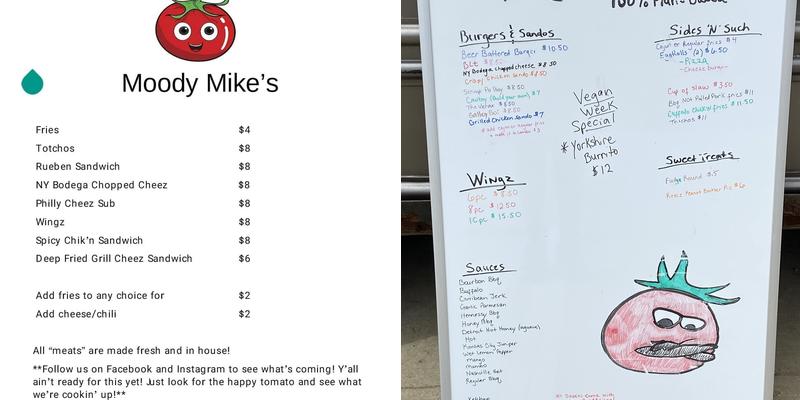 Moody Mike's
Fries $4
Totchos $8
Rueben Sandwich $8
NY Bodega Chopped Cheez $8
Philly Cheez Sub $8
Wingz $8
Spicy Chik'n Sandwich $8
Deep Fried Grill Cheez Sandwich $6
Add fries to any choice for $2
Add cheese/chili $2
All “meats” are made fresh and in house!
**Follow us on Facebook and Instagram to see what's coming! Y'all
ain't ready for this yet! Just look for the happy tomato and see what
we're cookin' up!**
100% Plant Based
Burgers & Sandos
Beer Battered Burger $10.50
BLT $8.50
NY Bodega chopped cheese $8.50
Crispy chicken sando $8.50
Shrimp Po Boy $8.50
Cowboy (build your own) $7
$8.50
$8.50
Grilled Chicken Sando $7
Vegan
Week
Special
*Yorkshire
Burrito
$12
Sides 'N' Such
Cajun or Regular fries $4
EggRolls (2) $6.50
-Pizza
-Cheeseburger-
Cup of slaw $3.50
BBQ Not Pulled Pork fries $11
Buffalo chick'n fries $11.50
Totchos $11
Wingz
6pc $8.50
8pc $12.50
10pc $15.50
Sweet Treats
Fudge Round $.5
Reese Peanut Butter Pie $6
Sauces
Bourbon Bbq
Buffalo
Carribean Jerk
Garlic Parmesan
Hennessy Bbq
Honey Bbq
Detroit Hot Honey (agave)
Hot
Kansas City Juniper
Wet Lemon Pepper
Mango
Mambo
Nashville Hot
Regular Bbq
Ketchup